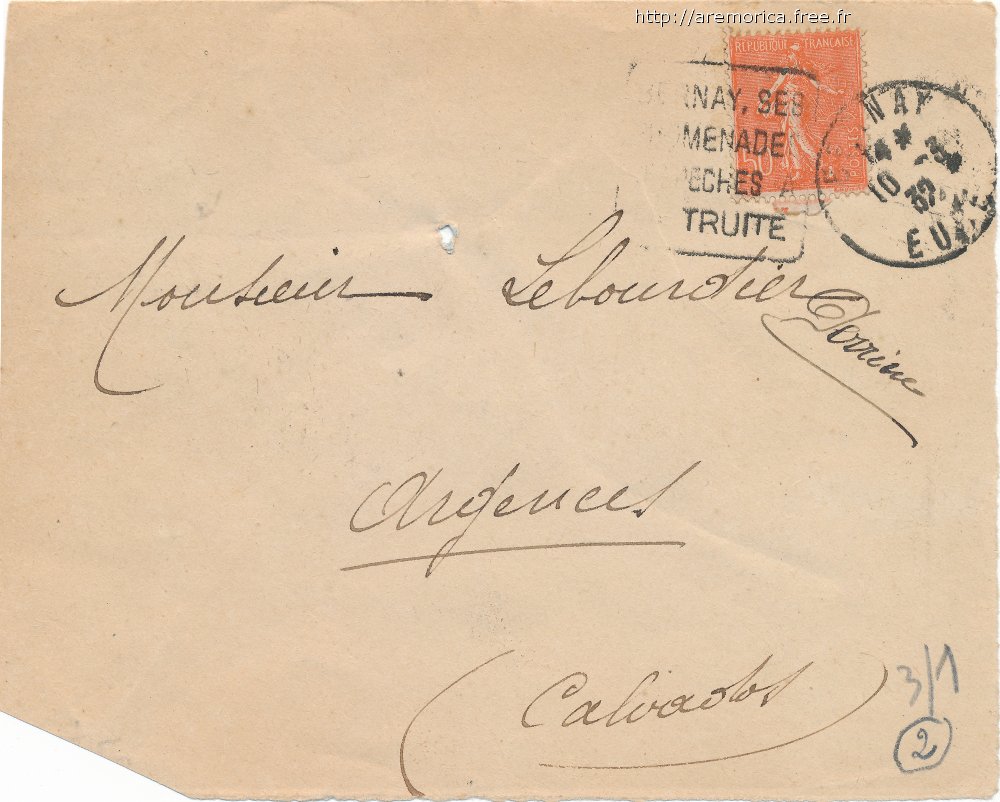 http://aremorica.free.fr
REPUBLIQUE FRANCAISE
POSTES
50
RNAY, SES
MENADE
PECHES A
TRUITE
NAY
10
EU
Monsieur Lebourdier
Perrine
Argences
(Calvados)
3/1
2